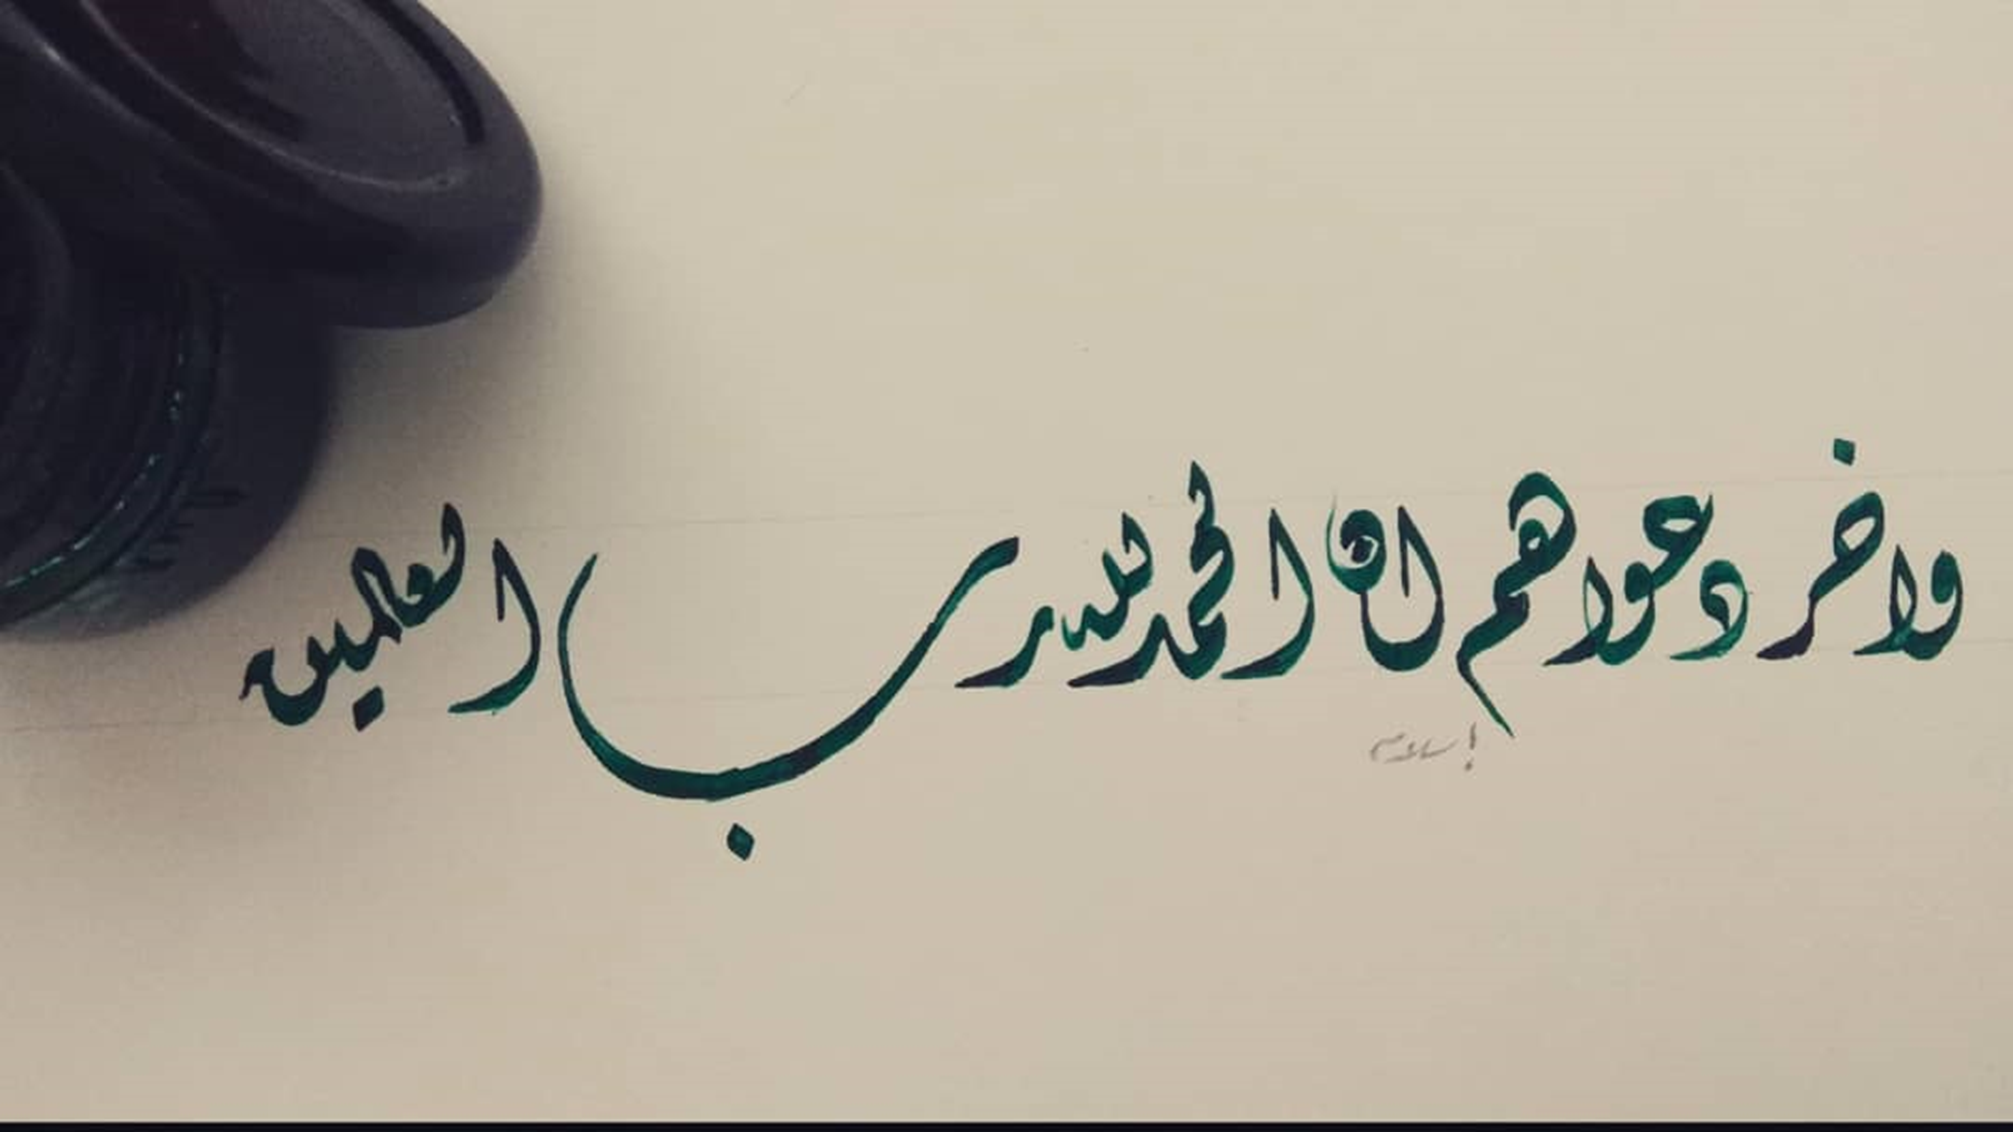 واخر دعواهم ان الحمد لله رب العالمين
إسلام